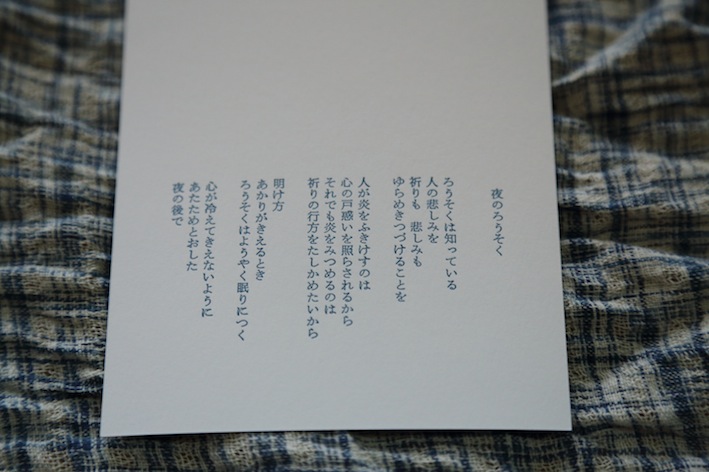 夜のろうそく
ろうそくは知っている
人の悲しみを
祈りも　悲しみも
ゆらめきつづけることを
人が炎をふきけすのは
心の戸惑いを照らされるから
それでも炎をみつめるのは
祈りの行方をたしかめたいから
明け方
あかりがきえるとき
ろうそくはようやく眠りにつく
心が冷えてきえないように
あたためとおした
夜の後で